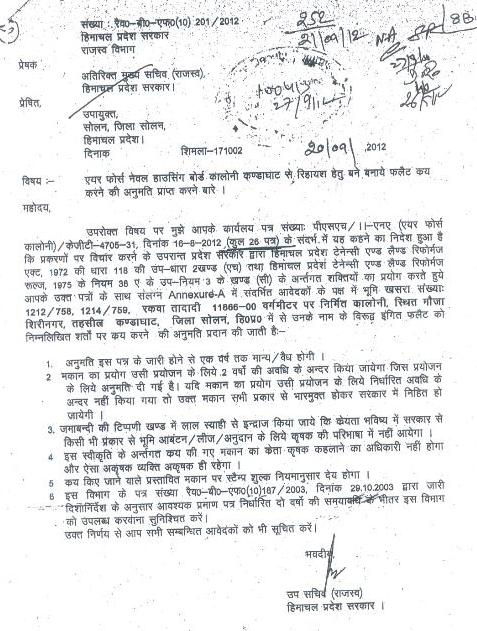 संख्या : रैव०-बी०-एफ०(10) 201/2012
हिमाचल प्रदेश सरकार
राजस्व विभाग
252
21/09/12
NA
8B
प्रेषक
अतिरिक्त मुख्य सचिव (राजस्व),
हिमाचल प्रदेश सरकार।
27/9/12
प्रेषित,
उपायुक्त,
सोलन, जिला सोलन,
हिमाचल प्रदेश।
दिनांक शिमला-171002 20/09/ ,2012
विषय :- एयर फोर्स नेवल हाउसिंग बोर्ड कालोनी कण्डाघाट से रिहायश हेतु बने बनाये फलैट कय
करने की अनुमति प्राप्त करने बारे ।
महोदय,
उपरोक्त विषय पर मुझे आपके कार्यालय पत्र संख्याः पीएसएच/।।-एनए (एयर फोर्स
कालोनी)/केजीटी-4705-31, दिनांक 16-8-2012 (कुल 26 पत्र) के संदर्भ में यह कहने का निदेश हुआ है
कि प्रकरणों पर विचार करने के उपरान्त प्रदेश सरकार द्वारा हिमाचल प्रदेश टेनेन्सी एण्ड लैण्ड रिफोर्मज
एक्ट, 1972 की धारा 118 की उप-धारा 2खण्ड (एच) तथा हिमाचल प्रदेश टेनेन्सी एण्ड लैण्ड रिफोर्मज
रूल्ज, 1975 के नियम 38 ए के उप-नियम 3 के खण्ड (सी) के अन्तर्गत शक्तियों का प्रयोग करते हुये
आपके उक्त पत्रों के साथ संलग्न Annexure-A में संदर्भित आवेदकों के पक्ष में भूमि खसरा संख्याः
1212/758, 1214/759, रकवा तादादी 11666-00 वर्गमीटर पर निर्मित कालोनी, स्थित मौजा
शिरीनगर, तहसील कण्डाघाट, जिला सोलन, हि०प्र० में से उनके नाम के विरूद्व इंगित फलैट को
निम्नलिखित शर्तो पर कय करने की अनुमति प्रदान की जाती है:-
1. अनुमति इस पत्र के जारी होने से एक वर्ष तक मान्य/वैध होगी ।
2 मकान का प्रयोग उसी प्रयोजन के लिये 2 वर्षो की अवधि के अन्दर किया जायेगा जिस प्रयोजन
के लिये अनुमति दी गई है। यदि मकान का प्रयोग उसी प्रयोजन के लिये निर्धारित अवधि के
अन्दर नहीं किया गया तो उक्त मकान सभी प्रकार से भारमुक्त होकर सरकार में निहित हो
जायेगी ।
3. जमाबन्दी की टिप्पणी खण्ड में लाल स्याही से इन्द्राज किया जाये कि केयता भविष्य में सरकार से
किसी भी प्रकार से भूमि आंबटन/लीज/अनुदान के लिये कृषक की परिभाषा में नहीं आयेगा ।
4 इस स्वीकृति के अर्न्तगत कय की गए मकान का केता कृषक कहलाने का अधिकारी नहीं होगा
और ऐसा अकृषक व्यक्ति अकृषक ही रहेगा ।
5 कय किए जाने वाले प्रस्तावित मकान पर स्टैम्प शुल्क नियमानुसार देय होगा ।
6 इस विभाग के पत्र संख्या रैव०-बी०-एफ०(10)187/2003, दिनांक 29.10.2003 द्वारा जारी
दिशानिर्देश के अनुसार आवश्यक प्रमाण पत्र निर्धारित दो वर्षो की समयावधि के भीतर इस विभाग
को उपलब्ध करवाना सुनिश्चित करें।
उक्त निर्णय से आप सभी सम्बन्धित आवेदकों को भी सूचित करें।
भवदीय,
उप सचिव (राजस्व)
हिमाचल प्रदेश सरकार ।